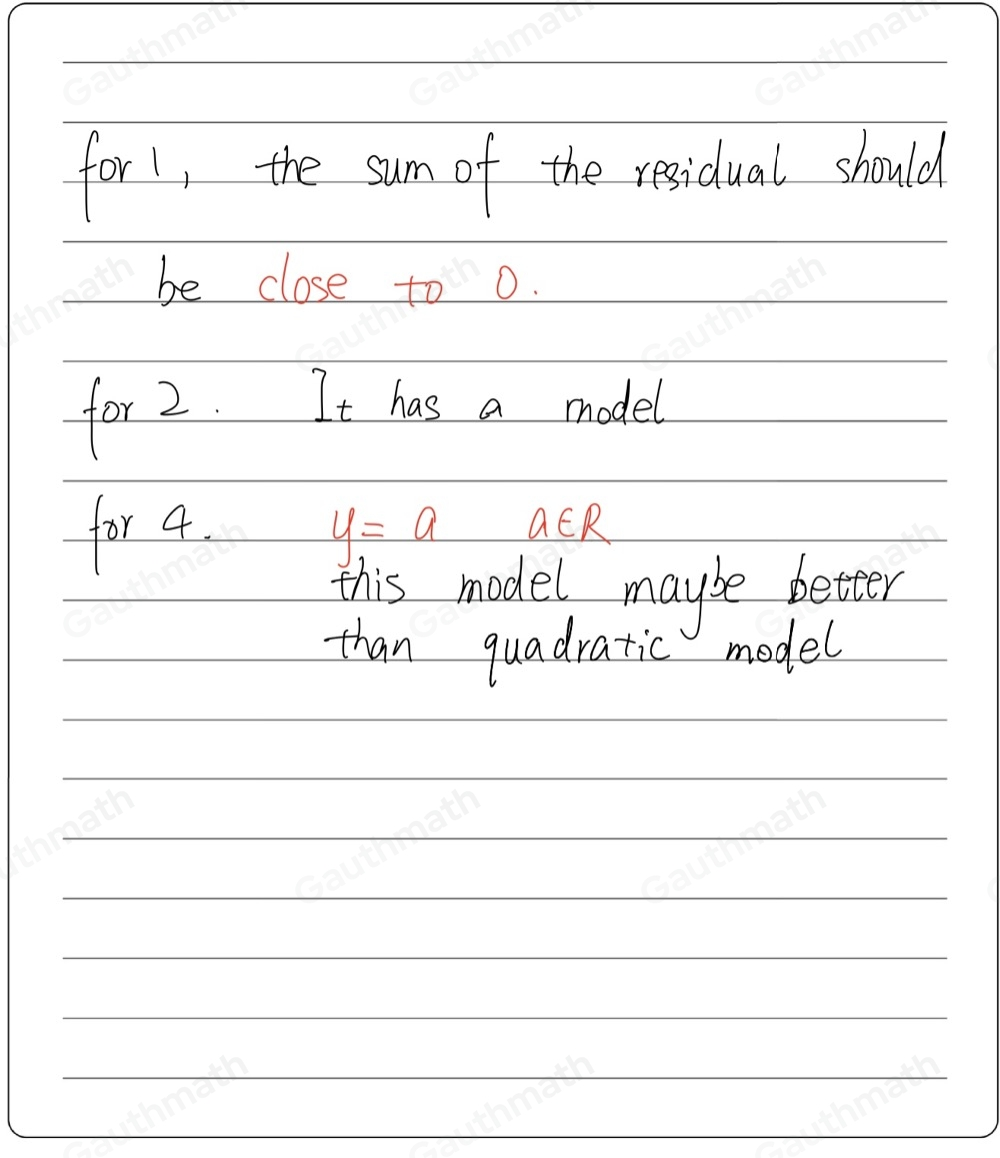 for 1, the sum of the residual should
be close to 0.
for 2. It has a model
for 4. y = a a∈R
this model maybe better
than quadratic model
Gauthmath